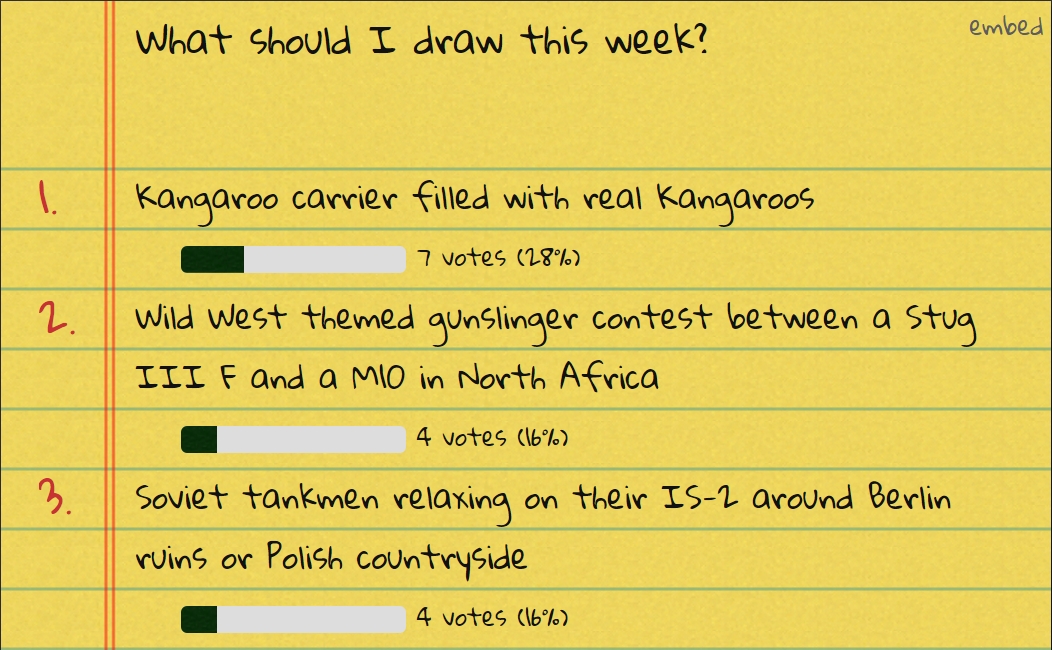 What should I draw this week?
embed
1.
Kangaroo carrier filled with real Kangaroos
7 votes (28%)
2.
Wild West themed gunslinger contest between a Stug
III F and a M10 in North Africa
4 votes (16%)
3.
Soviet tankmen relaxing on their IS-2 around Berlin
ruins or Polish countryside
4 votes (16%)